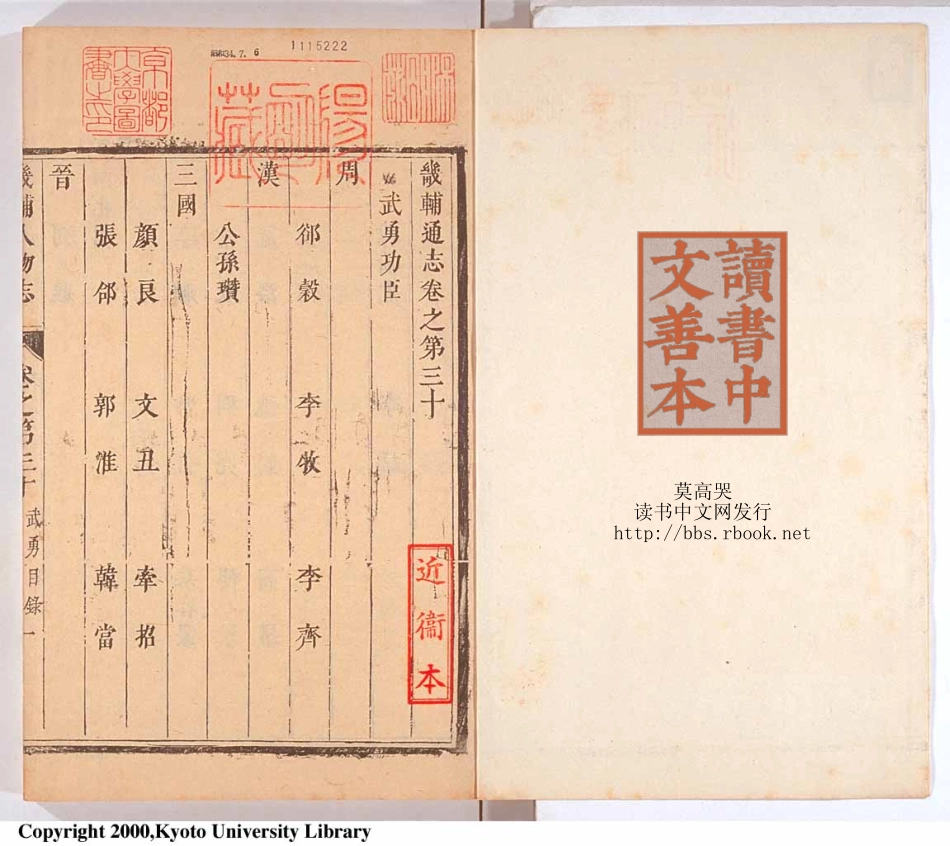 1115222
京都
大學圖
書之印
陽明藏
畿輔通志卷之第三十
武勇功臣
周
郤縠 李牧 李齊
漢
公孫瓚
三國
顏良 文丑 牽招
張郃 郭淮 韓當
晉
畿輔人物志 卷之第三十 武勇目錄一
近衞本
讀書中
文善本
莫高哭
读书中文网发行
http://bbs.rbook.net
Copyright 2000,Kyoto University Library